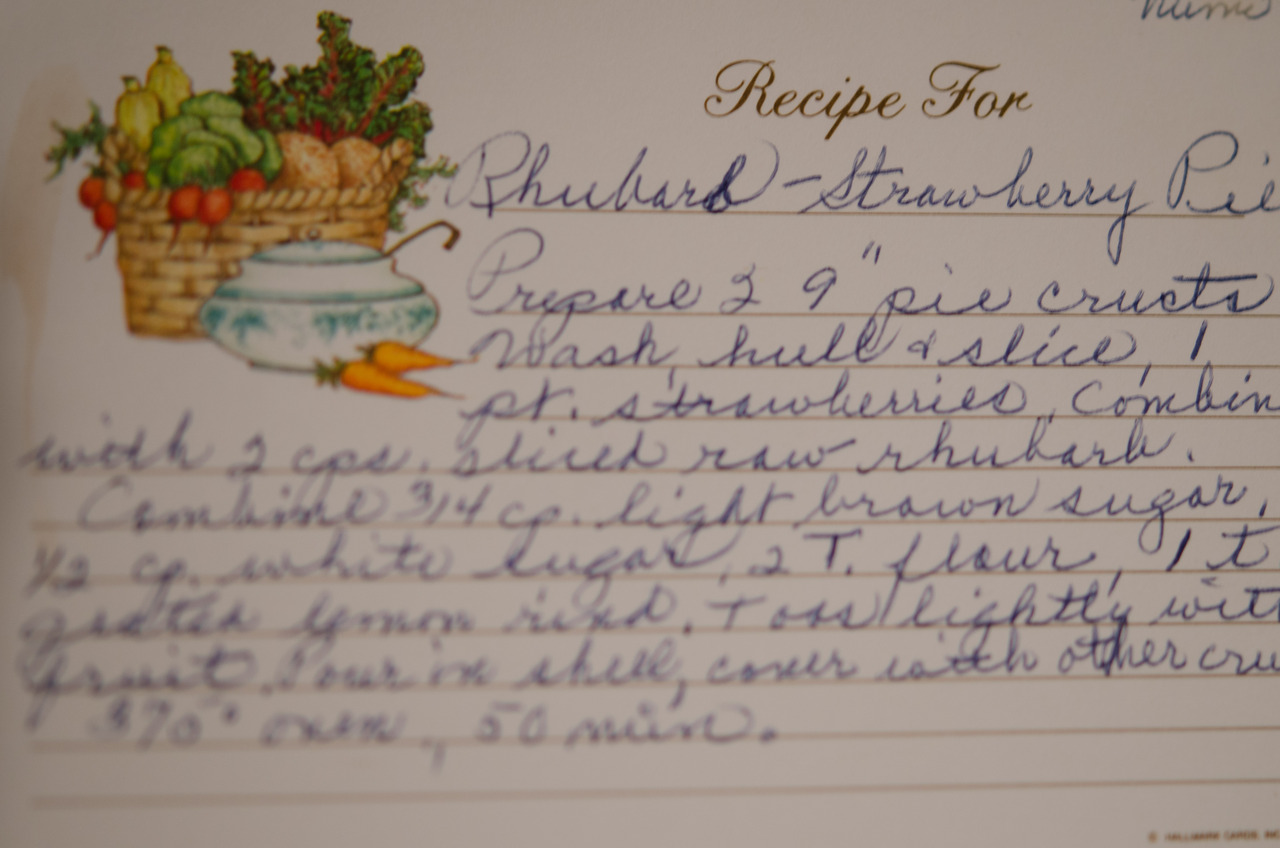 Recipe For
Rhubard - Strawberry Pie
Prepare 2 9" pie crusts
Wash, hull & slice, 1
pt. strawberries, Combin
with 2 cps. sliced raw rhubarb.
Combine 3/4 cp. light brown sugar,
1/2 cp. white sugar, 2 T. flour, 1 t
grated lemon rind. Toss lightly wit
fruit. Pour in shell, cover with other cru
375° oven, 50 min.
© HALLMARK CARDS, INC